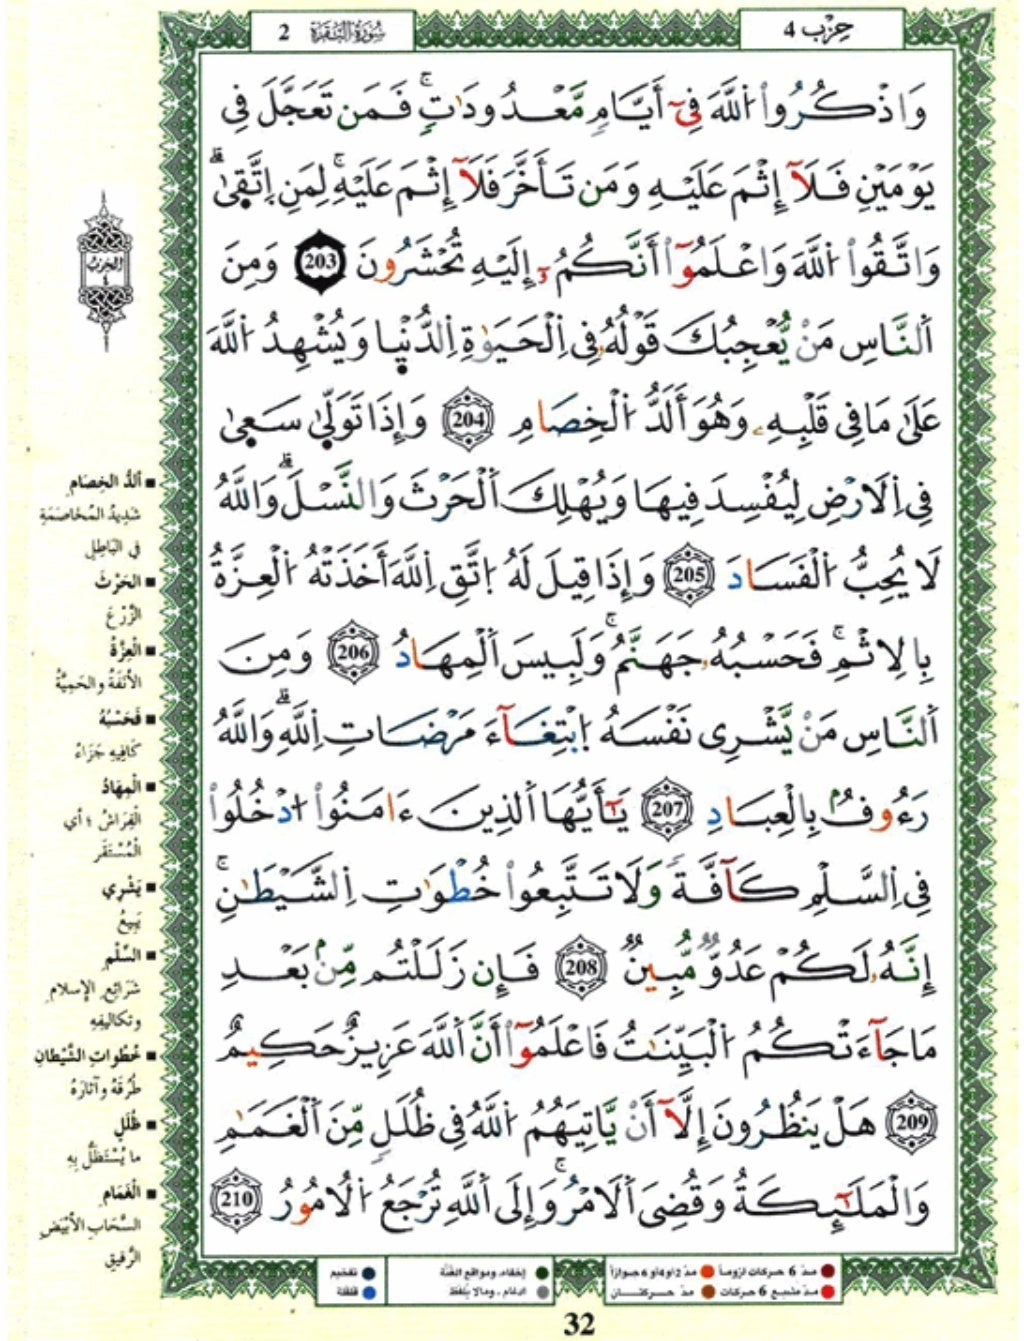 2 سُورَةُ البَقَرَة
حِزْب 4
وَاذْكُرُوا۟ اُ۬للَّهَ فِےٓ أَيَّامٖ مَّعْدُودَٰتٖۖ فَمَن تَعَجَّلَ فِے
يَوْمَيْنِ فَلَآ إِثْمَ عَلَيْهِ وَمَن تَأَخَّرَ فَلَآ إِثْمَ عَلَيْهِۖ لِمَنِ اِ۪تَّق۪ىٰۗ
وَاتَّقُوا۟ اُ۬للَّهَ وَاعْلَمُوٓا۟ أَنَّكُمُۥٓ إِلَيْهِ تُحْشَرُونَ 203 وَمِنَ
اَ۬لنَّاسِ مَنْ يُّعْجِبُكَ قَوْلُهُۥ فِے اِ۬لْحَيَوٰةِ اِ۬لدُّنْي۪ا وَيُشْهِدُ اُ۬للَّهَ
عَلَىٰ مَا فِے قَلْبِهِۦ وَهُوَ أَلَدُّ اُ۬لْخِصَامِ 204 وَإِذَا تَوَلّ۪ىٰ سَع۪ىٰ
فِے اِ۬لَارْضِ لِيُفْسِدَ فِيهَا وَيُهْلِكَ اَ۬لْحَرْثَ وَالنَّسْلَۗ وَاللَّهُ
لَا يُحِبُّ اُ۬لْفَسَادَ 205 وَإِذَا قِيلَ لَهُ اُ۪تَّقِ اِ۬للَّهَ أَخَذَتْهُ اُ۬لْعِزَّةُ
بِالِاثْمِۖ فَحَسْبُهُۥ جَهَنَّمُۖ وَلَبِيسَ اَ۬لْمِهَادُ 206 وَمِنَ
اَ۬لنَّاسِ مَنْ يَّشْرِے نَفْسَهُ اُ۪بْتِغَآءَ مَرْضَاتِ اِ۬للَّهِۗ وَاللَّهُ
رَءُوفُۢ بِالْعِبَادِ 207 يَٰٓأَيُّهَا اَ۬لذِينَ ءَامَنُوا۟ اُ۟دْخُلُوا۟
فِے اِ۬لسَّلْمِ كَآفَّةٗ وَلَا تَتَّبِعُوا۟ خُطْوَٰتِ اِ۬لشَّيْطَٰنِۖ
إِنَّهُۥ لَكُمْ عَدُوّٞ مُّبِينٞ 208 فَإِن زَلَلْتُم مِّنۢ بَعْدِ
مَا جَآءَتْكُمُ اُ۬لْبَيِّنَٰتُ فَاعْلَمُوٓا۟ أَنَّ اَ۬للَّهَ عَزِيزٌ حَكِيمٌ
209 هَلْ يَنظُرُونَ إِلَّآ أَنْ يَّاتِيَهُمُ اُ۬للَّهُ فِے ظُلَلٖ مِّنَ اَ۬لْغَمَٰمِ
وَالْمَلَٰٓئِكَةُ وَقُضِيَ اَ۬لَامْرُۖ وَإِلَى اَ۬للَّهِ تُرْجَعُ اُ۬لُامُورُ 210
الحِزْبُ
٤
■ أَلَدُّ الخِصَامِ
شَدِيدُ المُخَاصَمَةِ
فِي البَاطِلِ
■ الحَرْثَ
الزَّرْعَ
■ الْعِزَّةُ
الأَنَفَةُ والحَمِيَّةُ
■ فَحَسْبُهُ
كَافِيهِ جَزَاءً
■ الْمِهَادُ
الْفِرَاشُ ؛ أي
الْمُسْتَقَر
■ يَشْرِي
يَبِيعُ
■ السِّلْمِ
شَرَائِعِ الإِسلام
وتكاليفِهِ
■ خُطُواتِ الشَّيْطانِ
طُرُقَهُ وآثارَهُ
■ ظُلَلٍ
ما يُسْتَظَلُّ بِهِ
■ الْغَمَامِ
السَّحَابِ الأَبْيَضِ
الرَّقيقِ
مدّ 6 حركات لزوماً
مدّ 2 او 4 او 6 جوازاً
إخفاء، ومواقع الغنّة
تفخيم
مدّ مشبع 6 حركات
مدّ حركتان
ادغام، ومالا يُلفظ
قلقلة
32